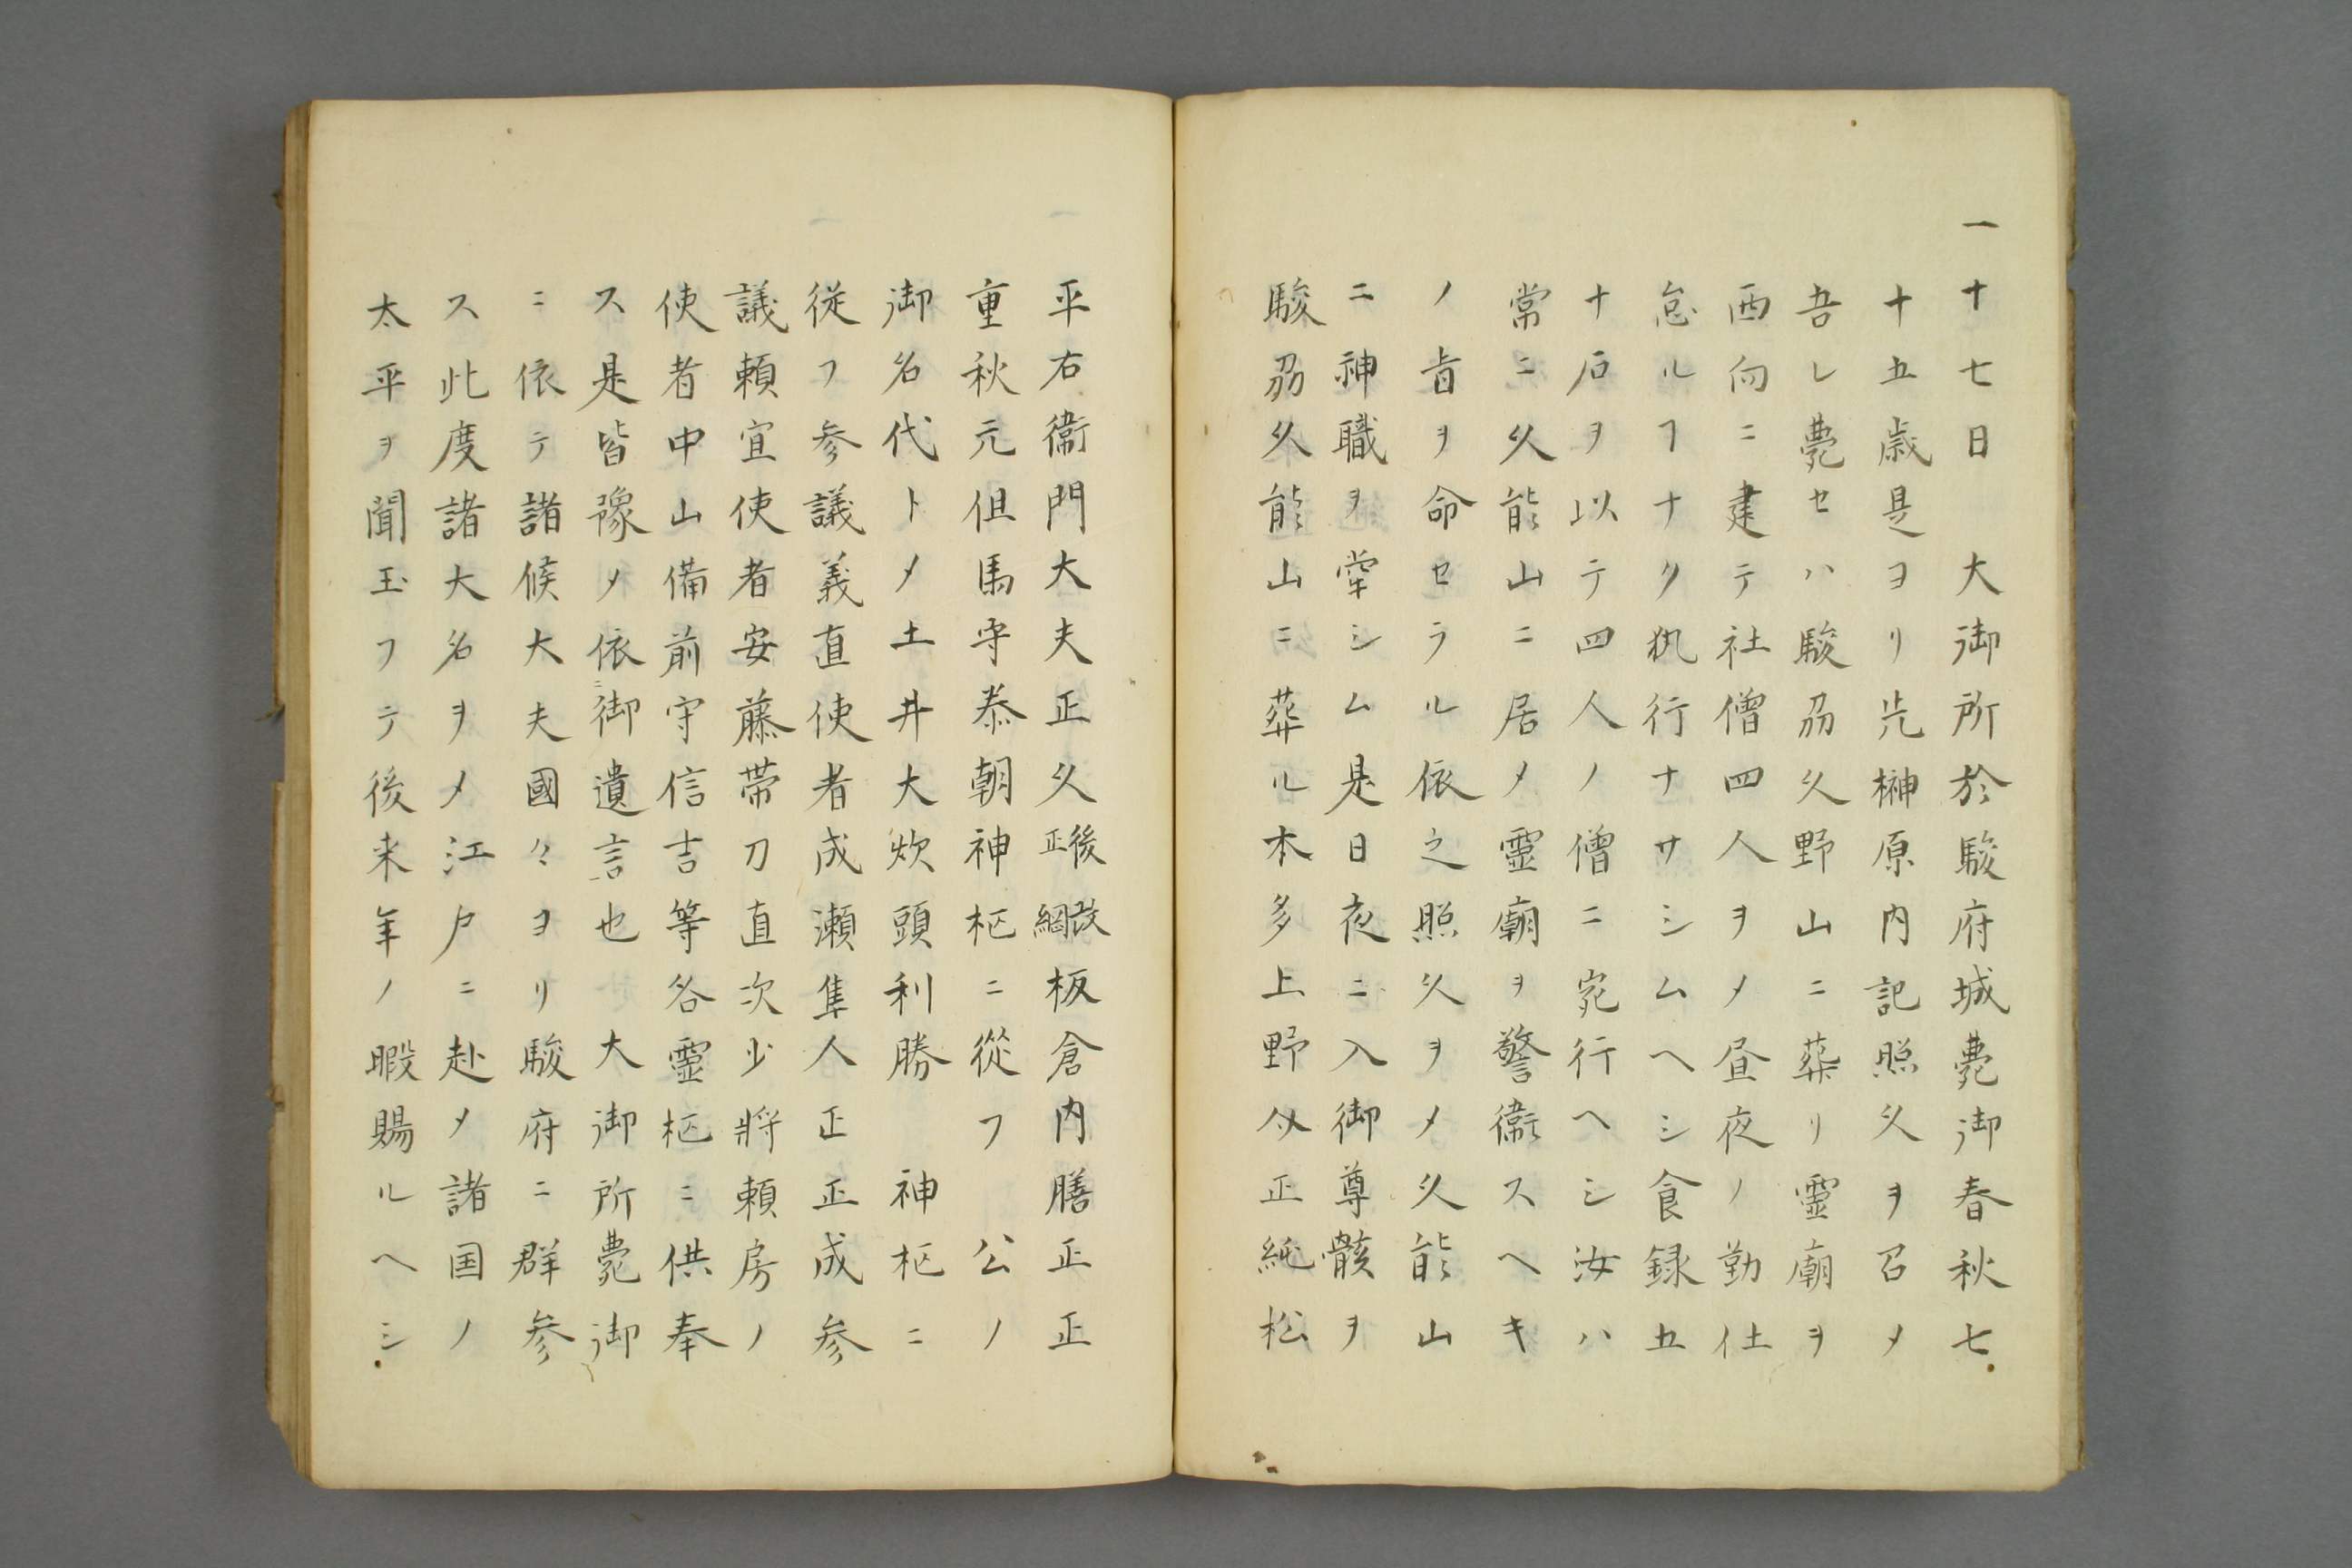 一十七日　大御所於駿府城薨御春秋七
十五歳是ヨリ先榊原内記照久ヲ召メ
吾レ薨セハ駿刕久野山ニ葬リ霊廟ヲ
西向ニ建テ社僧四人ヲメ昼夜ノ勤仕
怠ルヿナク執行ナサシムヘシ食録五
十石ヲ以テ四人ノ僧ニ宛行ヘシ汝ハ
常ニ久能山ニ居メ霊廟ヲ警衞スヘキ
ノ旨ヲ命セラル依之照久ヲメ久能山
ニ神職ヲ掌シム是日夜ニ入御尊骸ヲ
駿刕久能山ニ葬ル本多上野介正純松
平右衞門大夫正久後改正綱板倉内膳正正
重秋元但馬守泰朝神柩ニ從フ　公ノ
御名代トメ土井大炊頭利勝　神柩ニ
従フ参議義直使者成瀬隼人正正成参
議頼宣使者安藤帯刀直次少將頼房ノ
使者中山備前守信吉等各霊柩ニ供奉
ス是皆豫メ依ニ御遺言也　大御所薨御
ニ依テ諸候大夫國々ヨリ駿府ニ群参
ス此度諸大名ヲメ江戸ニ赴メ諸国ノ
太平ヲ聞玉フテ後来年ノ暇賜ルヘシ